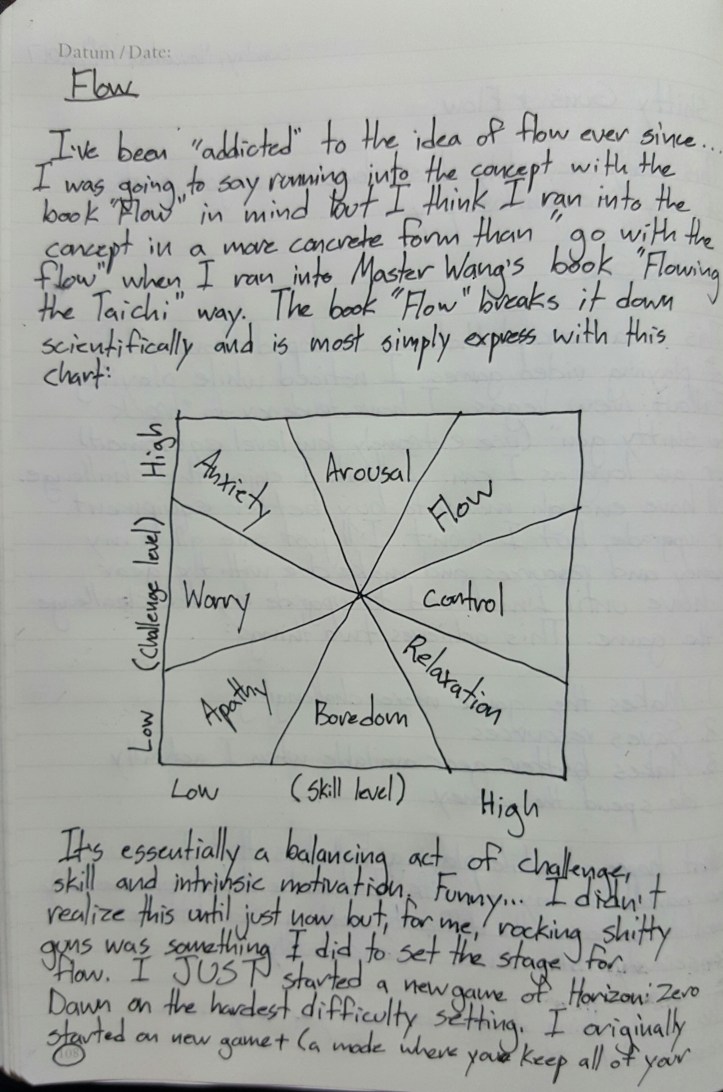 Datum / Date:
Flow
I've been "addicted" to the idea of flow ever since...
I was going to say running into the concept with the
book "Flow" in mind but I think I ran into the
concept in a more concrete form than "go with the
flow" when I ran into Master Wang's book "Flowing
the Taichi" way. The book "Flow" breaks it down
scientifically and is most simply express with this
chart:
High
Anxiety
Arousal
Flow
(Challenge level)
Worry
Control
Relaxation
Apathy
Boredom
Low
Low
(Skill level)
High
It's essentially a balancing act of challenge,
skill and intrinsic motivation. Funny... I didn't
realize this until just now but, for me, rocking shitty
guns was something I did to set the stage for
flow. I JUST started a new game of Horizon: Zero
Dawn on the hardest difficulty setting. I originally
started on new game+ (a mode where you keep all of your
108